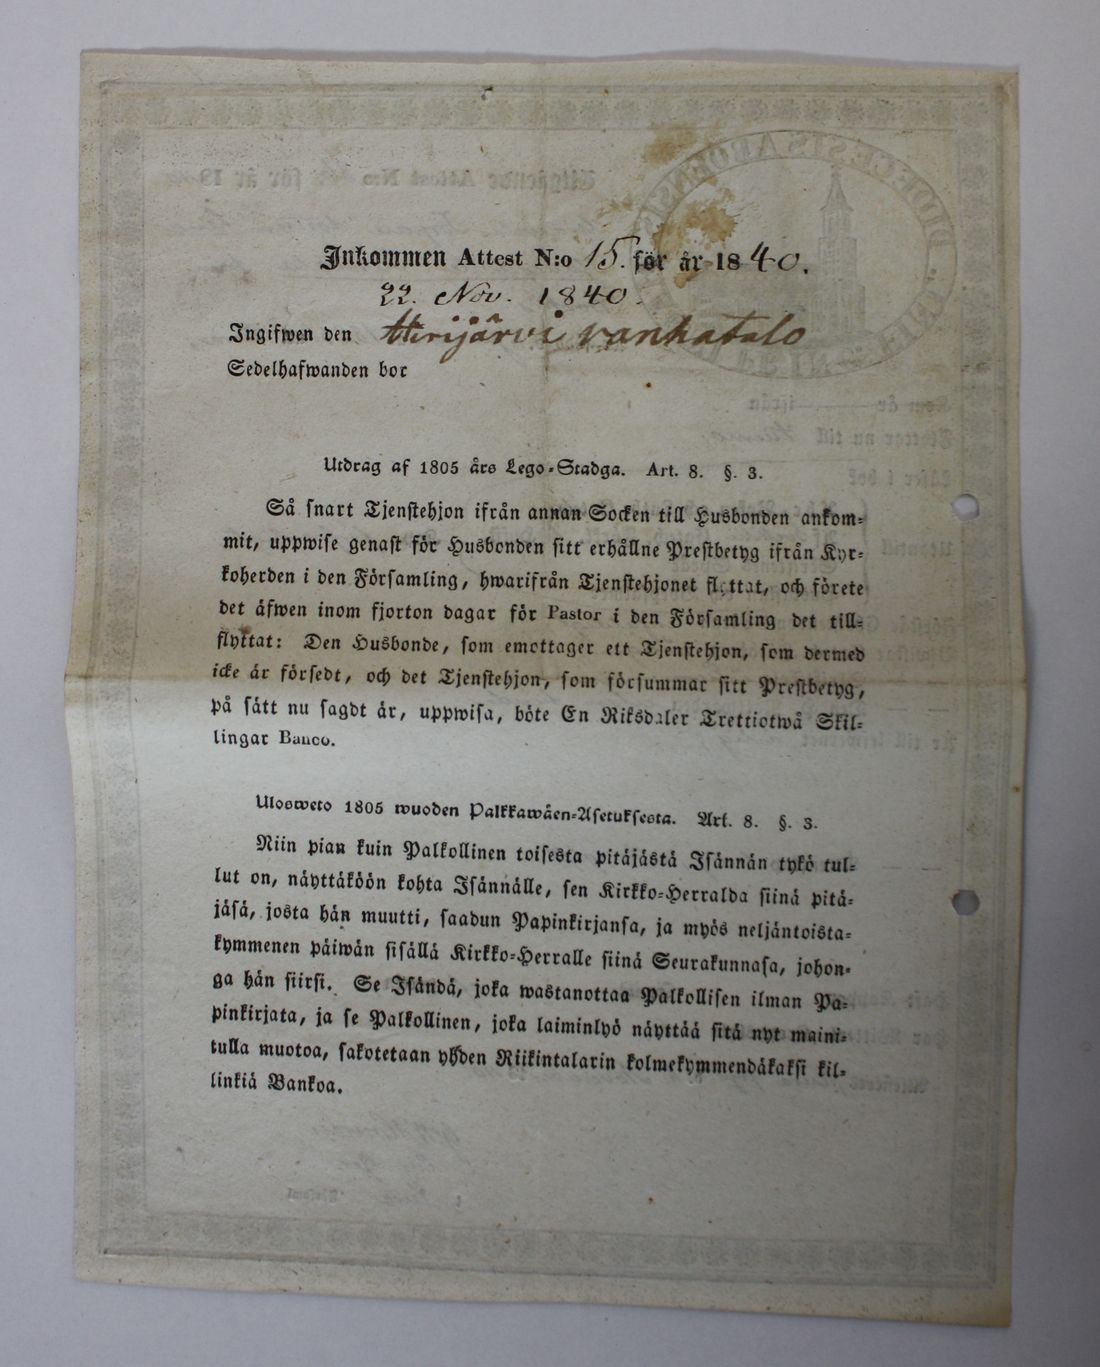 Inkommen Attest N:o 15. för år 1840.
22. Nov. 1840.
Ingifwen den
vanhatalo
Sedelhafwanden bor
Utdrag af 1805 års Lego-Stadga. Art. 8. §. 3.
Så snart Tjenstehjon ifrån annan Socken till Husbonden ankom-
mit, uppwise genast för Husbonden sitt erhållne Prestbetyg ifrån Kyr-
koherden i den Församling, hwarifrån Tjenstehjonet flyttat, och förete
det äfwen inom fjorton dagar för Pastor i den Församling det till-
flyttat: Den Husbonde, som emottager ett Tjenstehjon, som dermed
icke är försedt, och det Tjenstehjon, som försummar sitt Prestbetyg,
på sätt nu sagdt är, uppwisa, böte En Riksdaler Trettiotwå Skil-
lingar Banco.
Ulosweto 1805 wuoden Palkkawäen-Asetuksesta. Art. 8. §. 3.
Niin pian kuin Palkollinen toisesta pitäjästä Isännän tykö tul-
lut on, näyttäköön kohta Isännälle, sen Kirkko-Herralda siinä pitä-
jäsä, josta hän muutti, saadun Papinkirjansa, ja myös neljäntoista-
kymmenen päiwän sisällä Kirkko-Herralle siinä Seurakunnasa, johon-
ga hän siirsi. Se Isändä, joka wastanottaa Palkollisen ilman Pa-
pinkirjata, ja se Palkollinen, joka laiminlyö näyttää sitä nyt maini-
tulla muotoa, sakotetaan yhden Riikintalarin kolmekymmendäkaksi kil-
linkiä Bankoa.